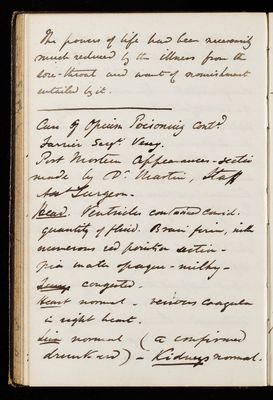 The powers of life had been necessarily
much reduced by the illness from the
sore-throat and want of nourishment
entailed by it.
Case of Opium Poisoning Contd.
Farrier Sergt. Very.
Post Mortem Appearances - section
made by Dr. Martin, Staff
Asst Surgeon.
Head. Ventricles contained consid.
quantity of fluid. Brain firm, with
numerous red points on section -
pia mater opaque - milky -
Lungs congested.
Heart normal - venous coagula
in right heart.
Liver normal (a confirmed
drunkard) - Kidneys normal.